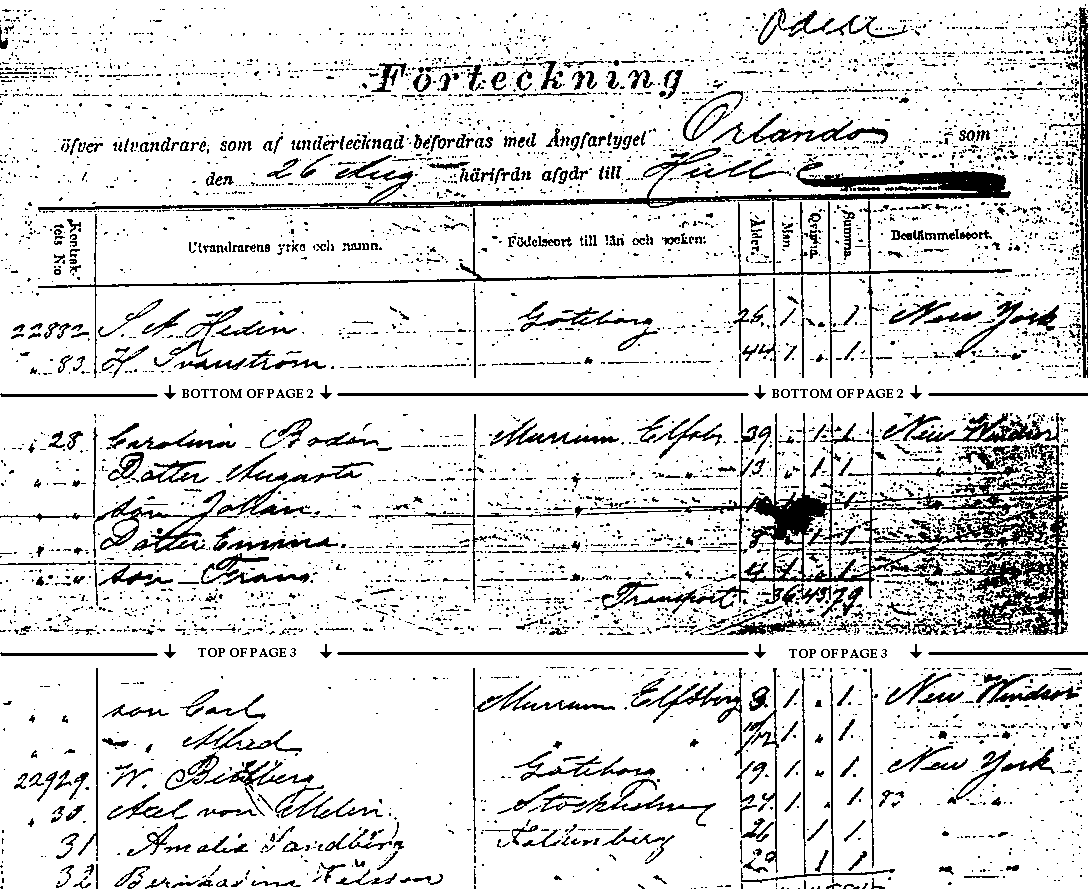 Förteckning
öfver utvandrare, som af undertecknad befordras med Ångfartyget Orlando som
den 26 Aug härifrån afgår till Hull
Kontrakts N:o Utvandrarens yrke och namn. Födelseort till län och socken. Ålder. Man. Qvinna. Summa. Bestämmelseort.
22882 S A Hedin Göteborg 26. 1 „ 1 New York
„ 83 H. Svanström „ 44 1 „ 1 „ „
BOTTOM OF PAGE 2 BOTTOM OF PAGE 2
„ 28 Carolina Bodén Murrum Elfsb 39 „ 1 1 New Windsor
„ „ Dotter Augusta „ „ 13 „ 1 1 „ „
„ „ son Johan. „ „ 1 „
„ „ Dotter Emma. „ „ 8 1 1
„ „ son Frans. „ „ 4 1 „ 1
Transport. 36 43 79.
TOP OF PAGE 3 TOP OF PAGE 3
„ „ son Carl Murrum Elfsborg 3. 1. „ 1. New Windsor
„ „ „ Alfred „ „ 1. „ 1. „ „
22929. W. Göteborg 19. 1. „ 1. New York
„ 30. Axel von Melin Stockholm 24. 1. „ 1. 83 „ „
31 Amalia Sandberg Falkenberg 26 1 1. „ „
32 Bernhardina Nilsson 1 1 „ „